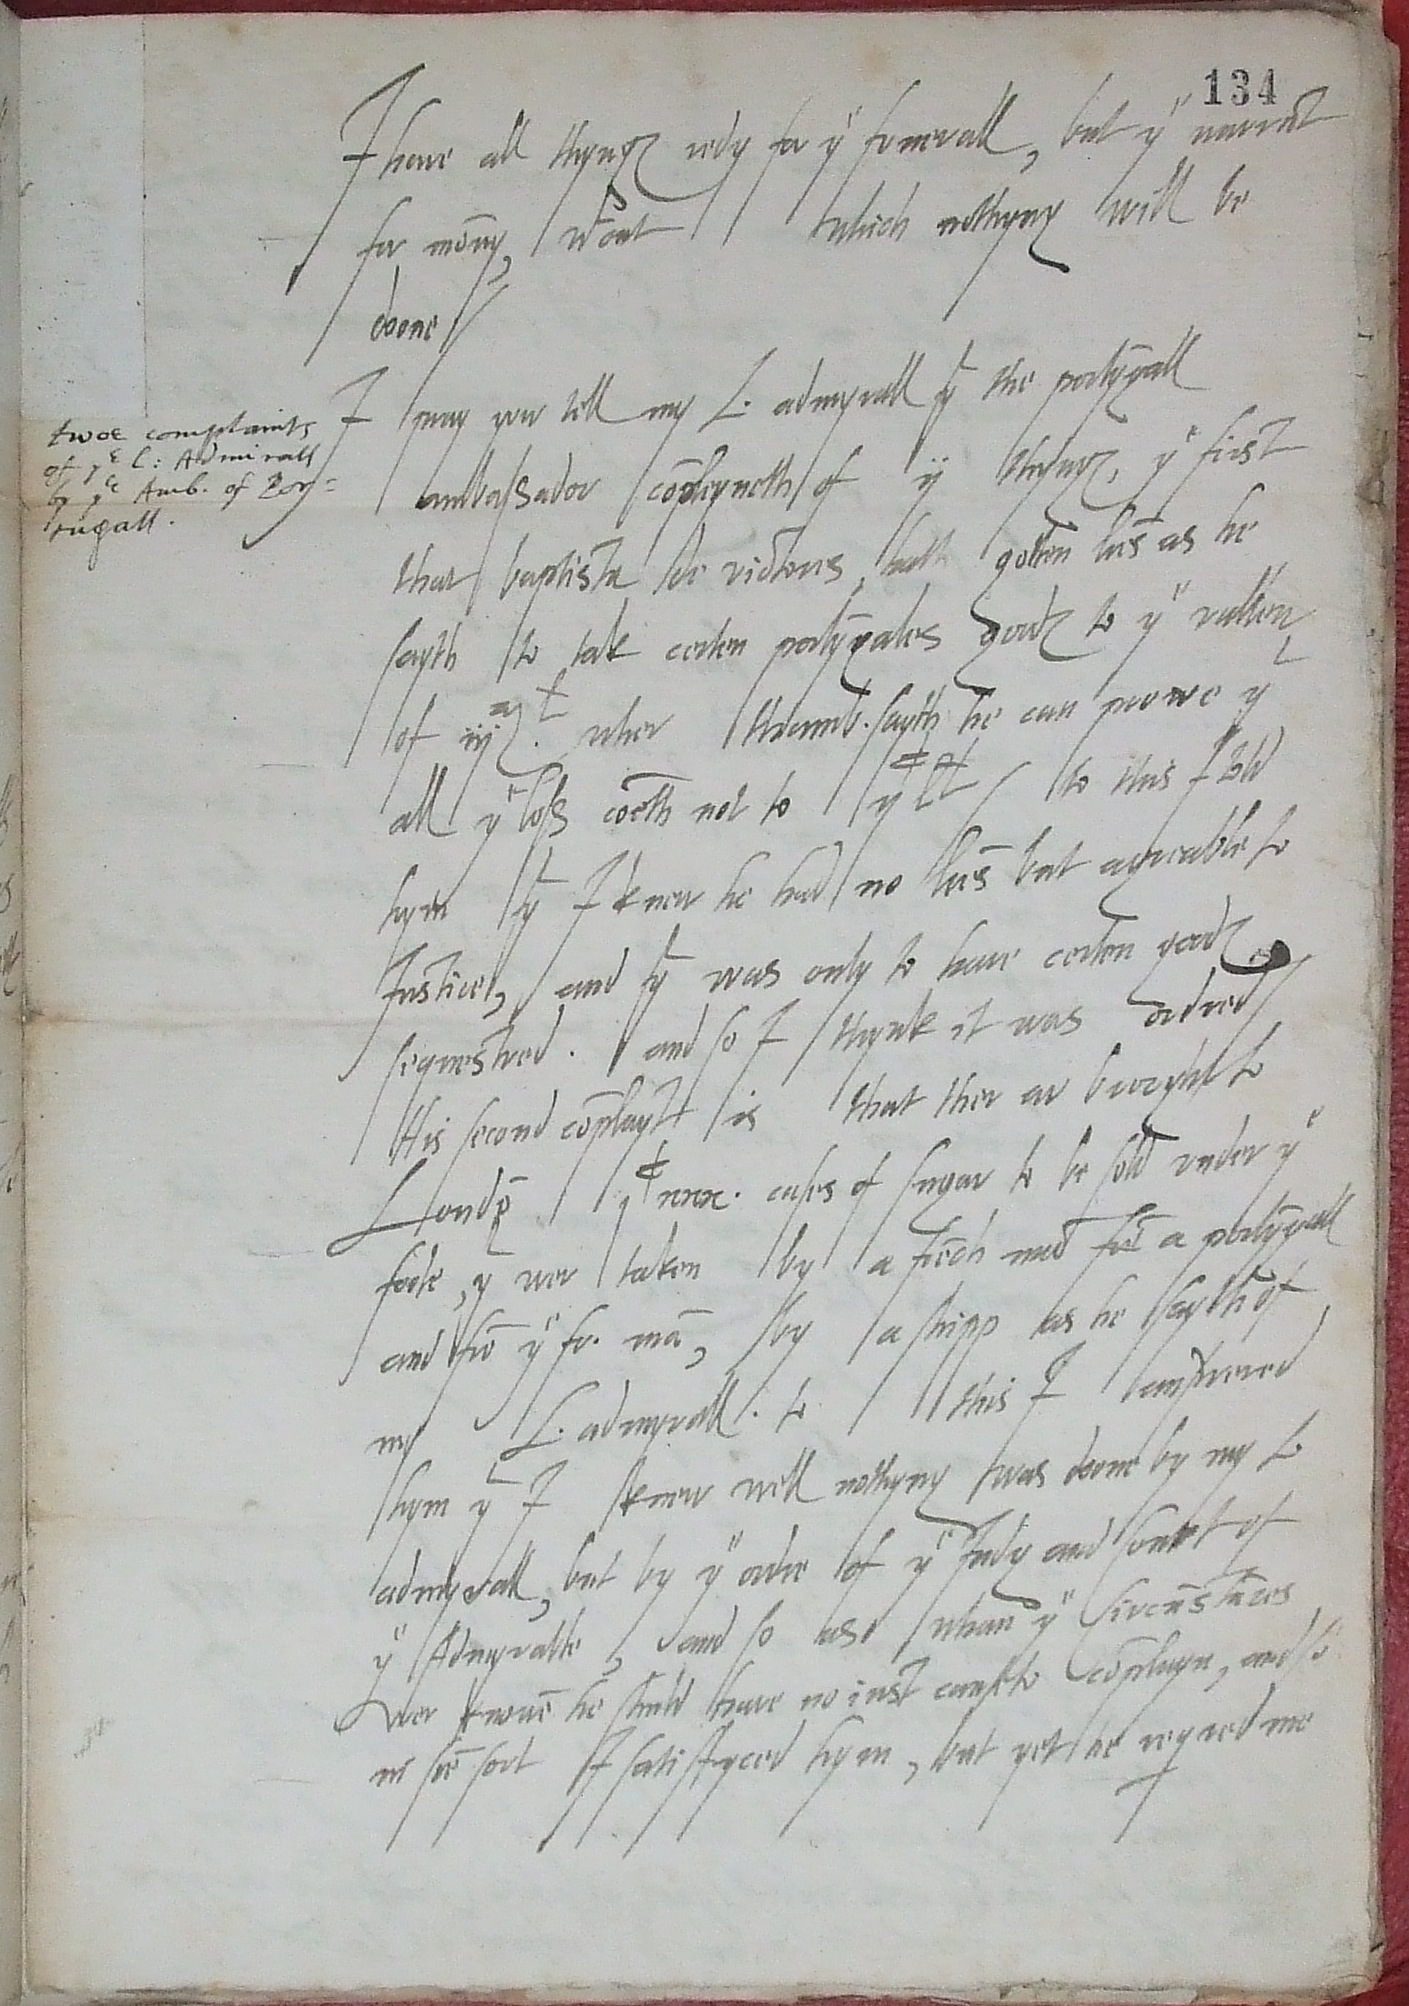 134
I have all thyngs redy for yᵉ funerall, but yᵉ warrãt
for mony, wᵗout which nothyng will be
doone
I pray you tell my L. admyrall yᵗ the portyngall
twoe complaints
of yᵉ L: Admirall
by yᵉ Amb. of Por=
tugall.
ambassador cõpleyneth of ij thyngs, yᵉ first
that baptista de victores, hath gotten lr̃es as he
sayth to tak certen portyngales goods to yᵉ vallew
of wher thamb. sayth he can prove yᵗ
all yᵉ loss cõeth not to to this I told
hym yᵗ I knew he had no lr̃es but agreable to
Justice, and yᵗ was only to have certen goods
sequestred. and so I thynk it was ordred
His second cõplaynt is that ther ar brought to
Londõ cases of sugar to be sold vnder yᵉ
foote, yᵗ wer taken by a frẽch mã frõ a portyngall
and frõ yᵉ fr. mã, by a shipp as he sayth of
my L. admyrall. to this I answered
hym yᵗ I knew well nothyng was doone by my L
admyrall, but by yᵉ ordre of yᵉ Judg and Court of
yᵉ Admyralte, and so as whan yᵉ circũstãces
wer knowẽ he shuld have no iust cause to cõplayn, and so
in sũe sort I satisfyced hym, but yet he reqred me